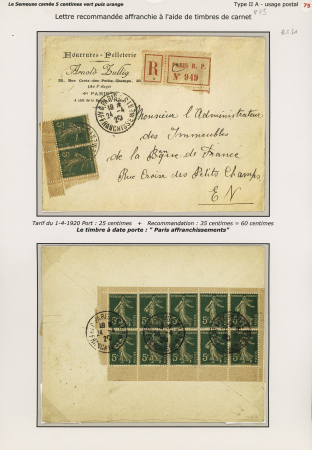 Le Semeuse camée 5 centimes vert puis orange
Type II A - usage postal 75
Lettre recommandée affranchie à l'aide de timbres de carnet
Fourrures - Pelleterie
Arnold Zullig
PARIS
R
PARIS R. P.
N° 949
Monsieur l'Administrateur
des Immeubles
de la Bque de France
Rue Croix des Petits Champs
E N
Tarif du 1-4-1920 Port : 25 centimes + Recommandation : 35 centimes = 60 centimes
Le timbre à date porte : " Paris affranchissements"